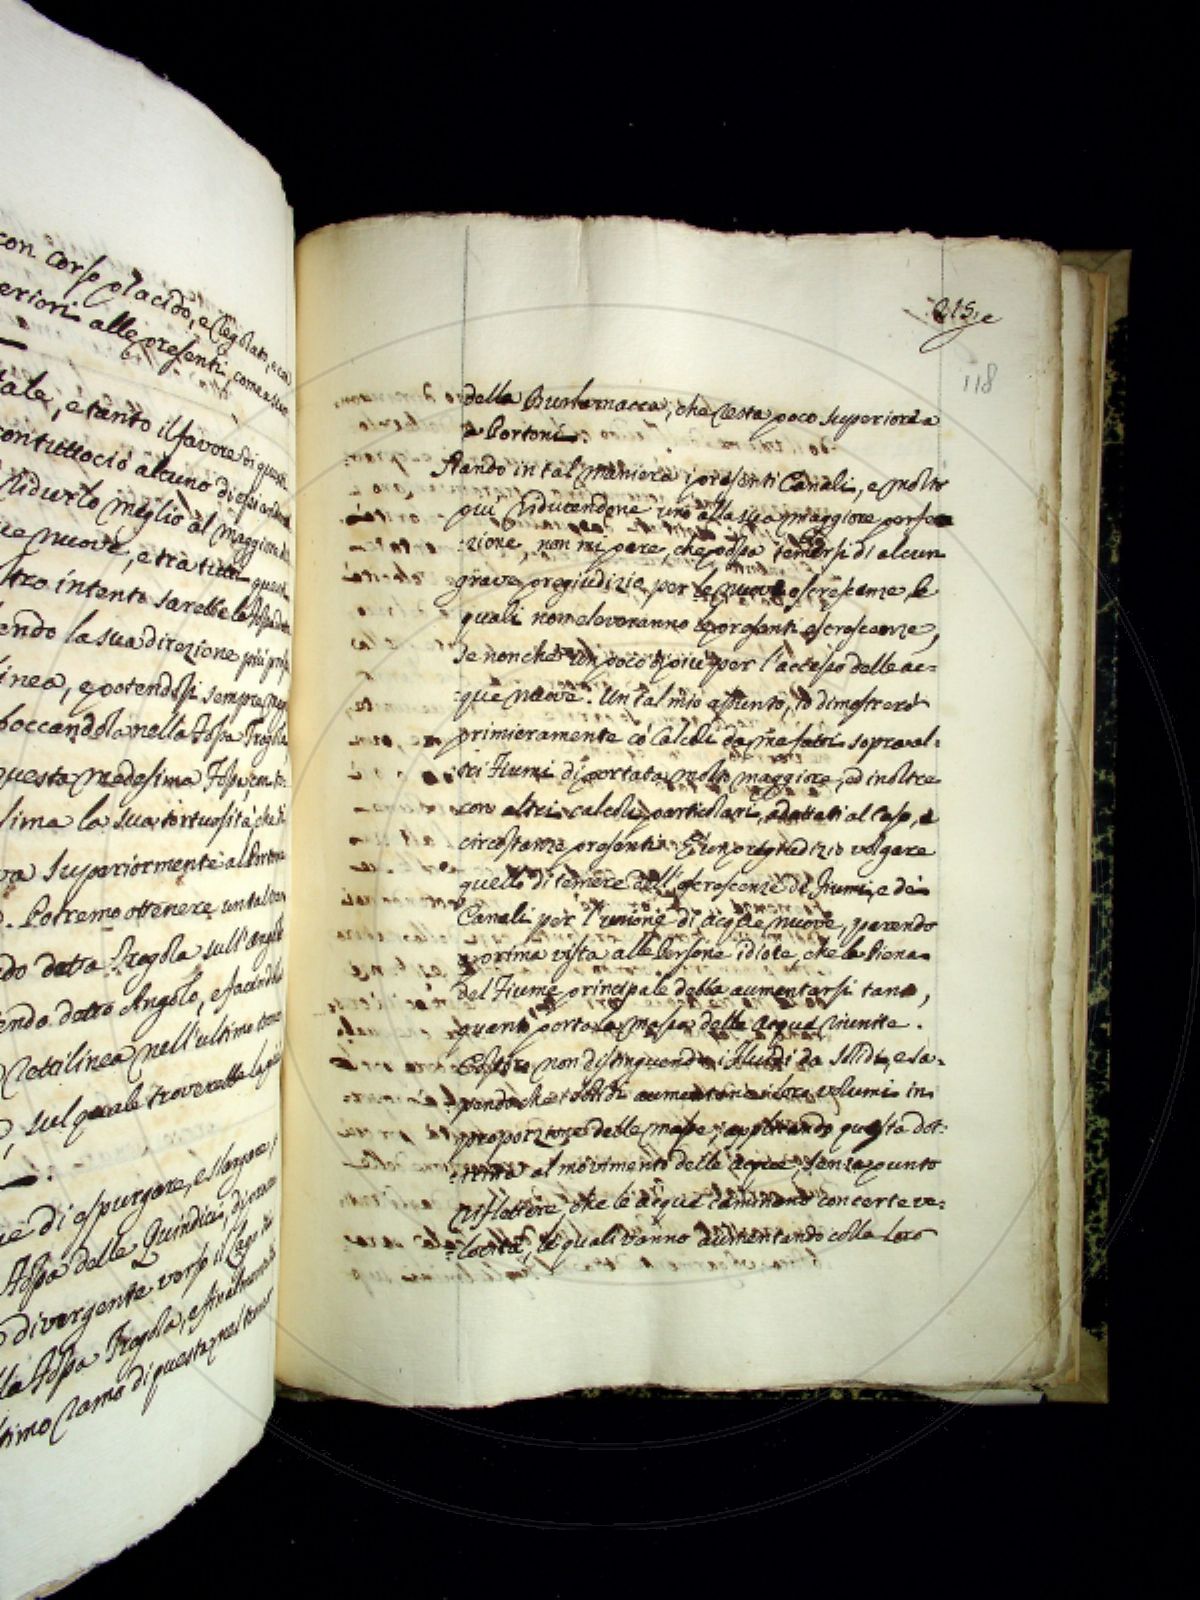 con corso placido, e regolato, e co
eriori alle presenti, come a suo
tale, e tanto il favore di quest
contuttociò alcuno di essi arida
ridurlo meglio al maggior
ue nuove, e tra tutti quest
tro intento sarebbe la Fossa
endo la sua direzione più pross
inea, e potendosi sempre più
boccandola nella Fossa Fregola
questa medesima Fossa, con
sima la sua tortuosità, che di
va superiormente al Portone
. Potremo ottenere un tal
do detta Fregola sull'angolo
endo detto Angolo, e facendola
rettilinea nell'ultimo tron
, sul quale troverebbe la più
ie di espurgare, e slargare,
Fossa delle Quindici, di
divergente verso il Lago
lla Fossa Fregola, e finalmente
timo ramo di questa nel
215. e
118
della Burlamacca, che resta poco superiore a
e Portoni.
Stando in tal maniera i presenti Canali, e molto
più riducendone uno alla sua maggiore perfe
:zione, non mi pare, che possa temersi di alcun
grave pregiudizio per le nuove escrescenze, le
quali non eleveranno le presenti escrescenze,
se nonchè un poco di più per l'accesso delle ac-
que nuove. Un tal mio assunto, lo dimostrerò
primieramente co' Calcoli da me fatti sopra al-
tri Fiumi di portata molto maggiore, ed inoltre
con altri calcoli particolari, adattati al Caso, e
circostanze presenti. È un pregiudizio volgare
quello di temere dell'escrescenze de' Fiumi, e dei
Canali per l'unione di acque nuove, parendo
a prima vista alle Persone idiote, che la Piena
del Fiume principale debba aumentarsi tanto,
quanto porta la massa delle acque riunite.
Costoro non distinguendo i fluidi da solidi, e sa-
pendo che i solidi aumentano i loro volumi in
proporzione delle masse; applicando questa dot-
:trina al movimento delle acque, senza punto
riflettere, che le acque camminano con certe ve:
locità, le quali vanno aumentando colla loro